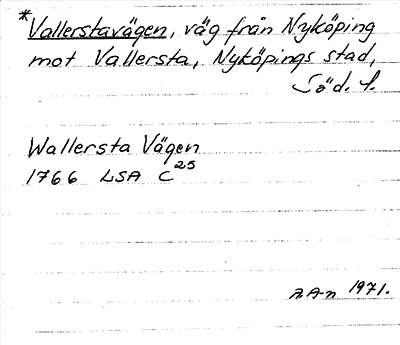 *Vallerstavägen, väg från Nyköping
mot Vallersta, Nyköpings stad,
Söd. l.
Wallersta Vägen
1766 LSA C25
AA-n 1971.